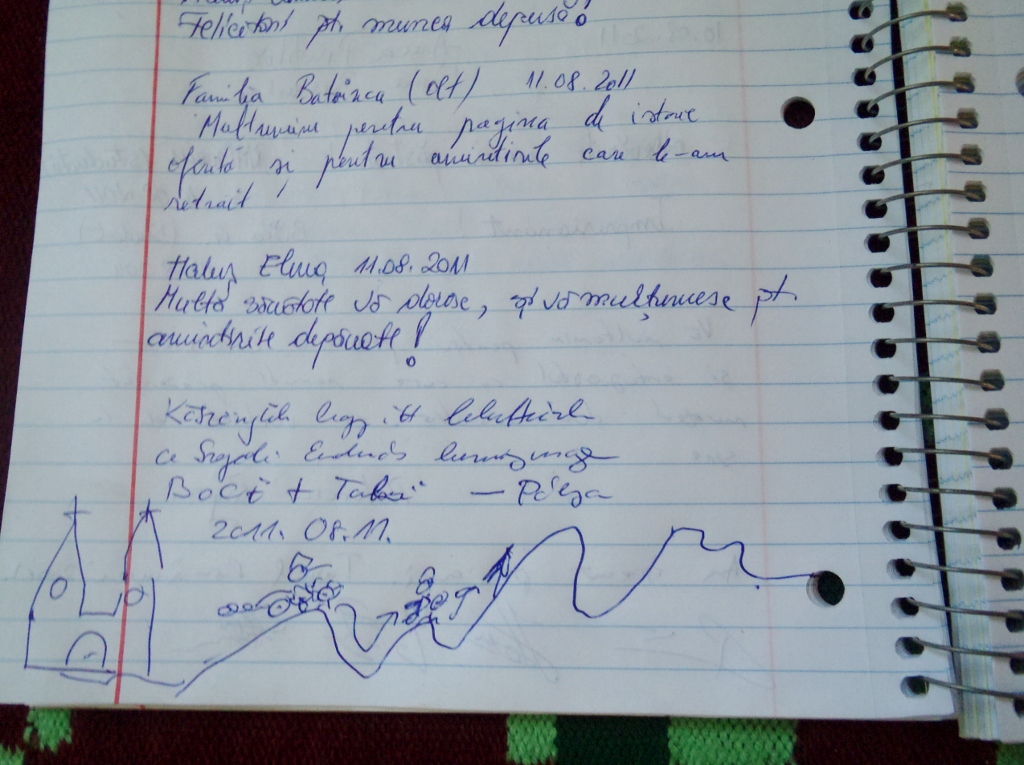 Felicitări pt. munca depusă!
Familia (Olt) 11.08.2011
Multumim pentru pagina de istorie
oferita și pentru amintirile care le-am
retrait
Elena 11.08.2011
Multă sănătate vă doresc, și vă mulțumesc pt.
amintirile depănate!
Köszönjük hogy itt lehettünk
a
Boci + — Pólya
2011. 08.11.